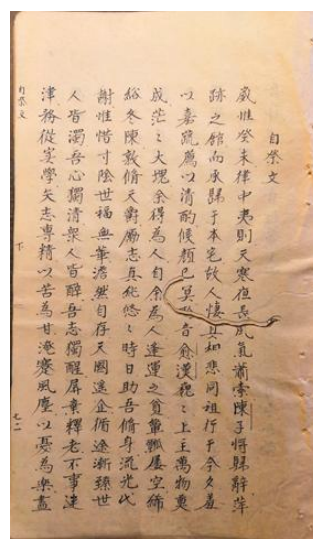 自祭文
歲惟癸未律中夷則天寒夜長風氣蕭索陳子將歸辭萍
跡之館而永歸于本宅故人悽其如悲同祖行于今夕羞
以嘉蔬薦以清酌候顏已冥音愈漠穆〻上主萬物奠
成茫〻大塊余得為人自余為人逢運之貧簞瓢屢空絺
綌冬陳敦脩天爵勵志真純悠〻時日助吾脩身流光代
謝惟惜寸陰世福無華澹然自存天國遥企循途漸臻世
人皆濁吾心獨清衆人皆醉吾志獨醒屏棄釋老不事迷
津務從寔學矢志專精以苦為甘淹蹇風塵以憂為樂晝
自祭文 下 七二